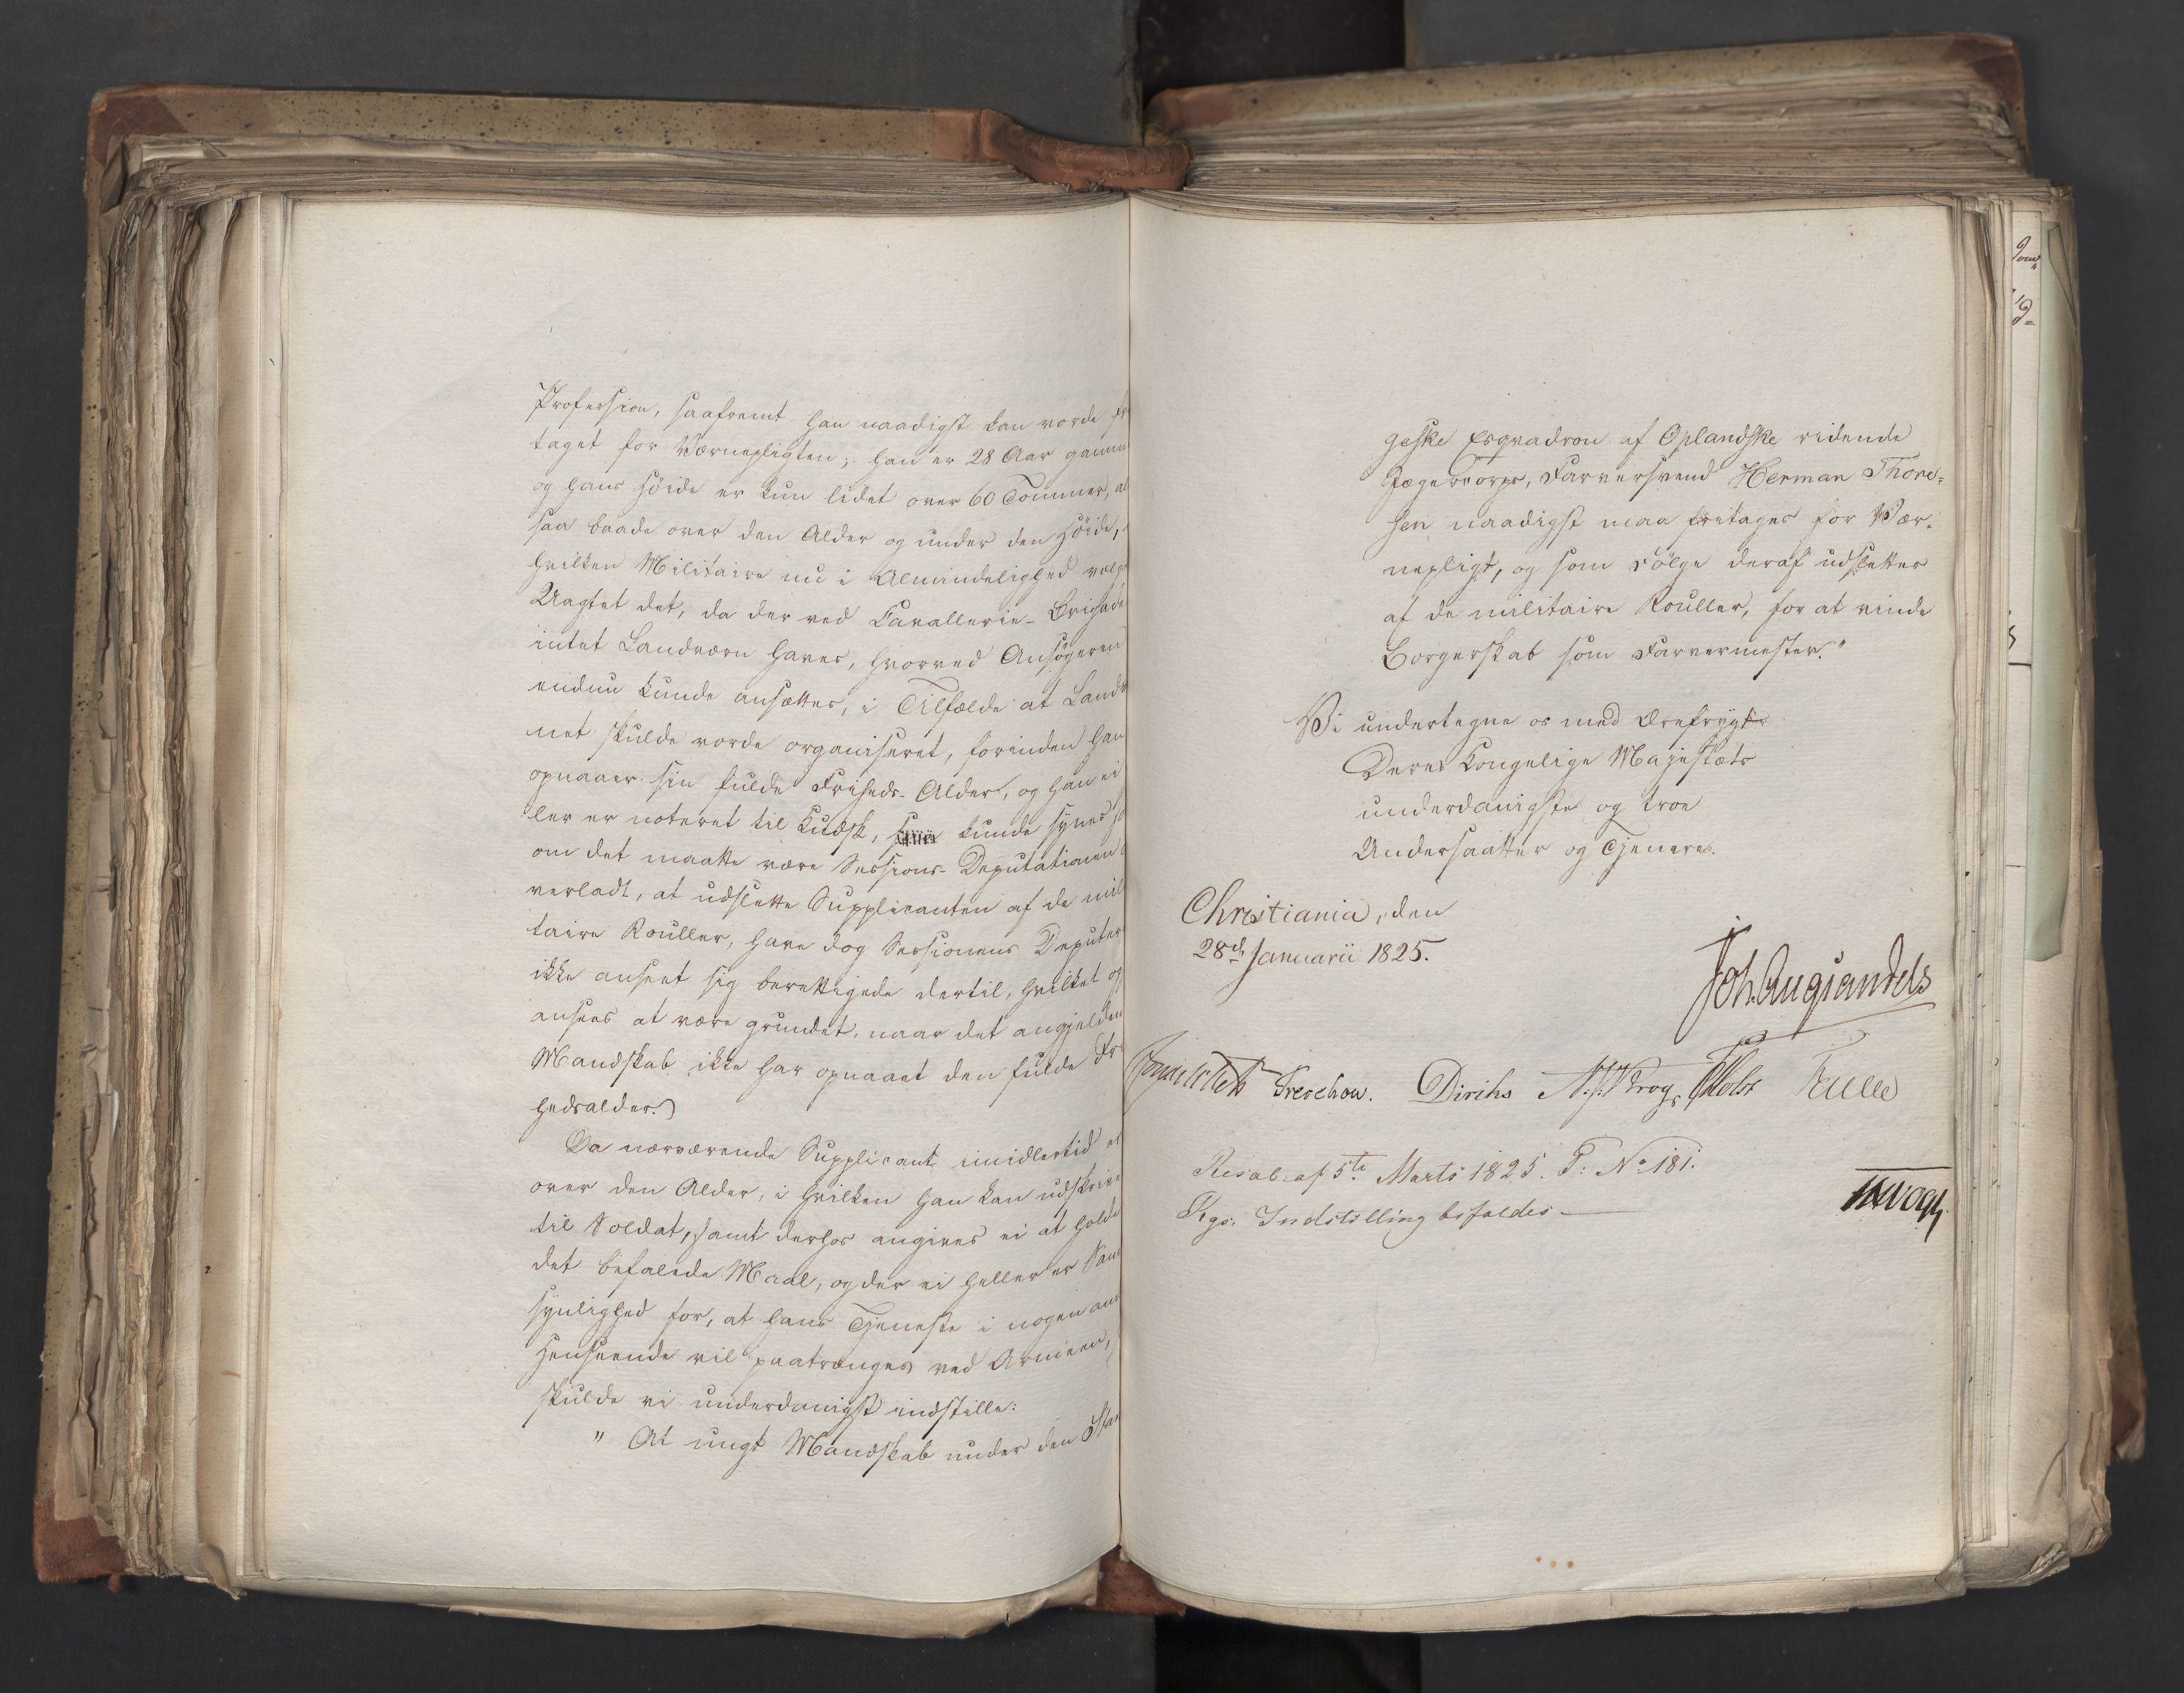 Profession, saafremt han naadigst kan vorde fri
taget for Værnepligten; han er 28 Aar gamm
og hans Höide er kun lidet over 60 Tommer, al
saa baade over den Alder og under den Höide,
hvilken Militaire nu i Almindelighed vælg
Uagtet det, da der ved Cavallerie-Brigade
intet Landværn haves, hvorved Ansögeren
endnu kunde ansættes, i Tilfælde at Landv
net skulde vorde organiseret, forinden han
opnaaer sin fulde Friheds-Alder, og han ei
ler er noteret til Kudsk, kunde synes so
om det maatte være Sessions-Deputationen
verladt, at udslette Supplicanten af de mili
taire Rouller, have dog Sessionens Deputer
ikke anseet sig berettigede dertil, hvilket og
ansees at være grundet, naar det angjelden
Mandskab ikke har opnaaet den fulde Fri
hedsalder.)
Da nærværende Supplicant imidlertid er
over den Alder, i hvilken han kan udskrive
til Soldat, samt derhos angives ei at holde
det befalede Maal, og der ei heller er Sand
synlighed for, at hans Tjeneste i nogen an
Henseende vil paatrænges ved Armeen,
skulde vi underdanigst indstille:
" At ungt Mandskab under den Stan
geske Esqvadron af Oplandske ridende
Jægercorps, Farversvend Herman Thore-
sen naadigst maa fritages for Vær-
nepligt, og som Fölge deraf udslettes
af de militaire Rouller, for at vinde
Borgerskab som Farvermester."
Vi undertegne os med Ærefrygt
Deres Kongelige Majestæts
underdanigste og troe
Undersaatter og Tjenere.
Christiania, den
28de Januarii 1825.
Joh. Aug Sandels
Treschow. Diriks N. J. Krog Holst
Resol. af 5te Marts 1825. P: No 181.
Rgs: Indstilling bifaldes